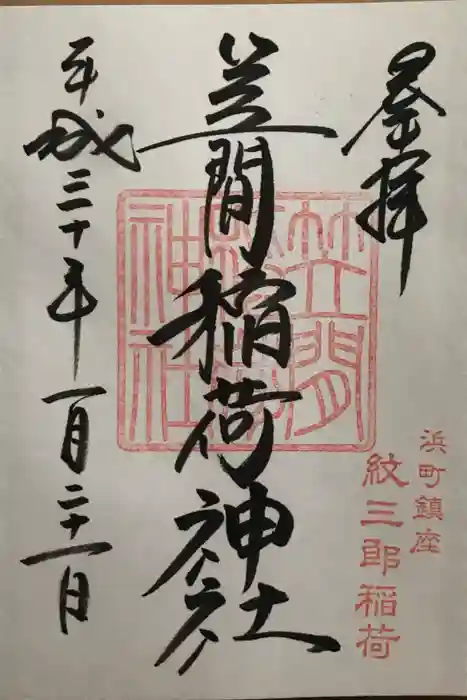 奉拝
浜町鎮座
紋三郎稲荷
笠間稲荷神社
笠間稲荷神社
平成三十年一月二十一日